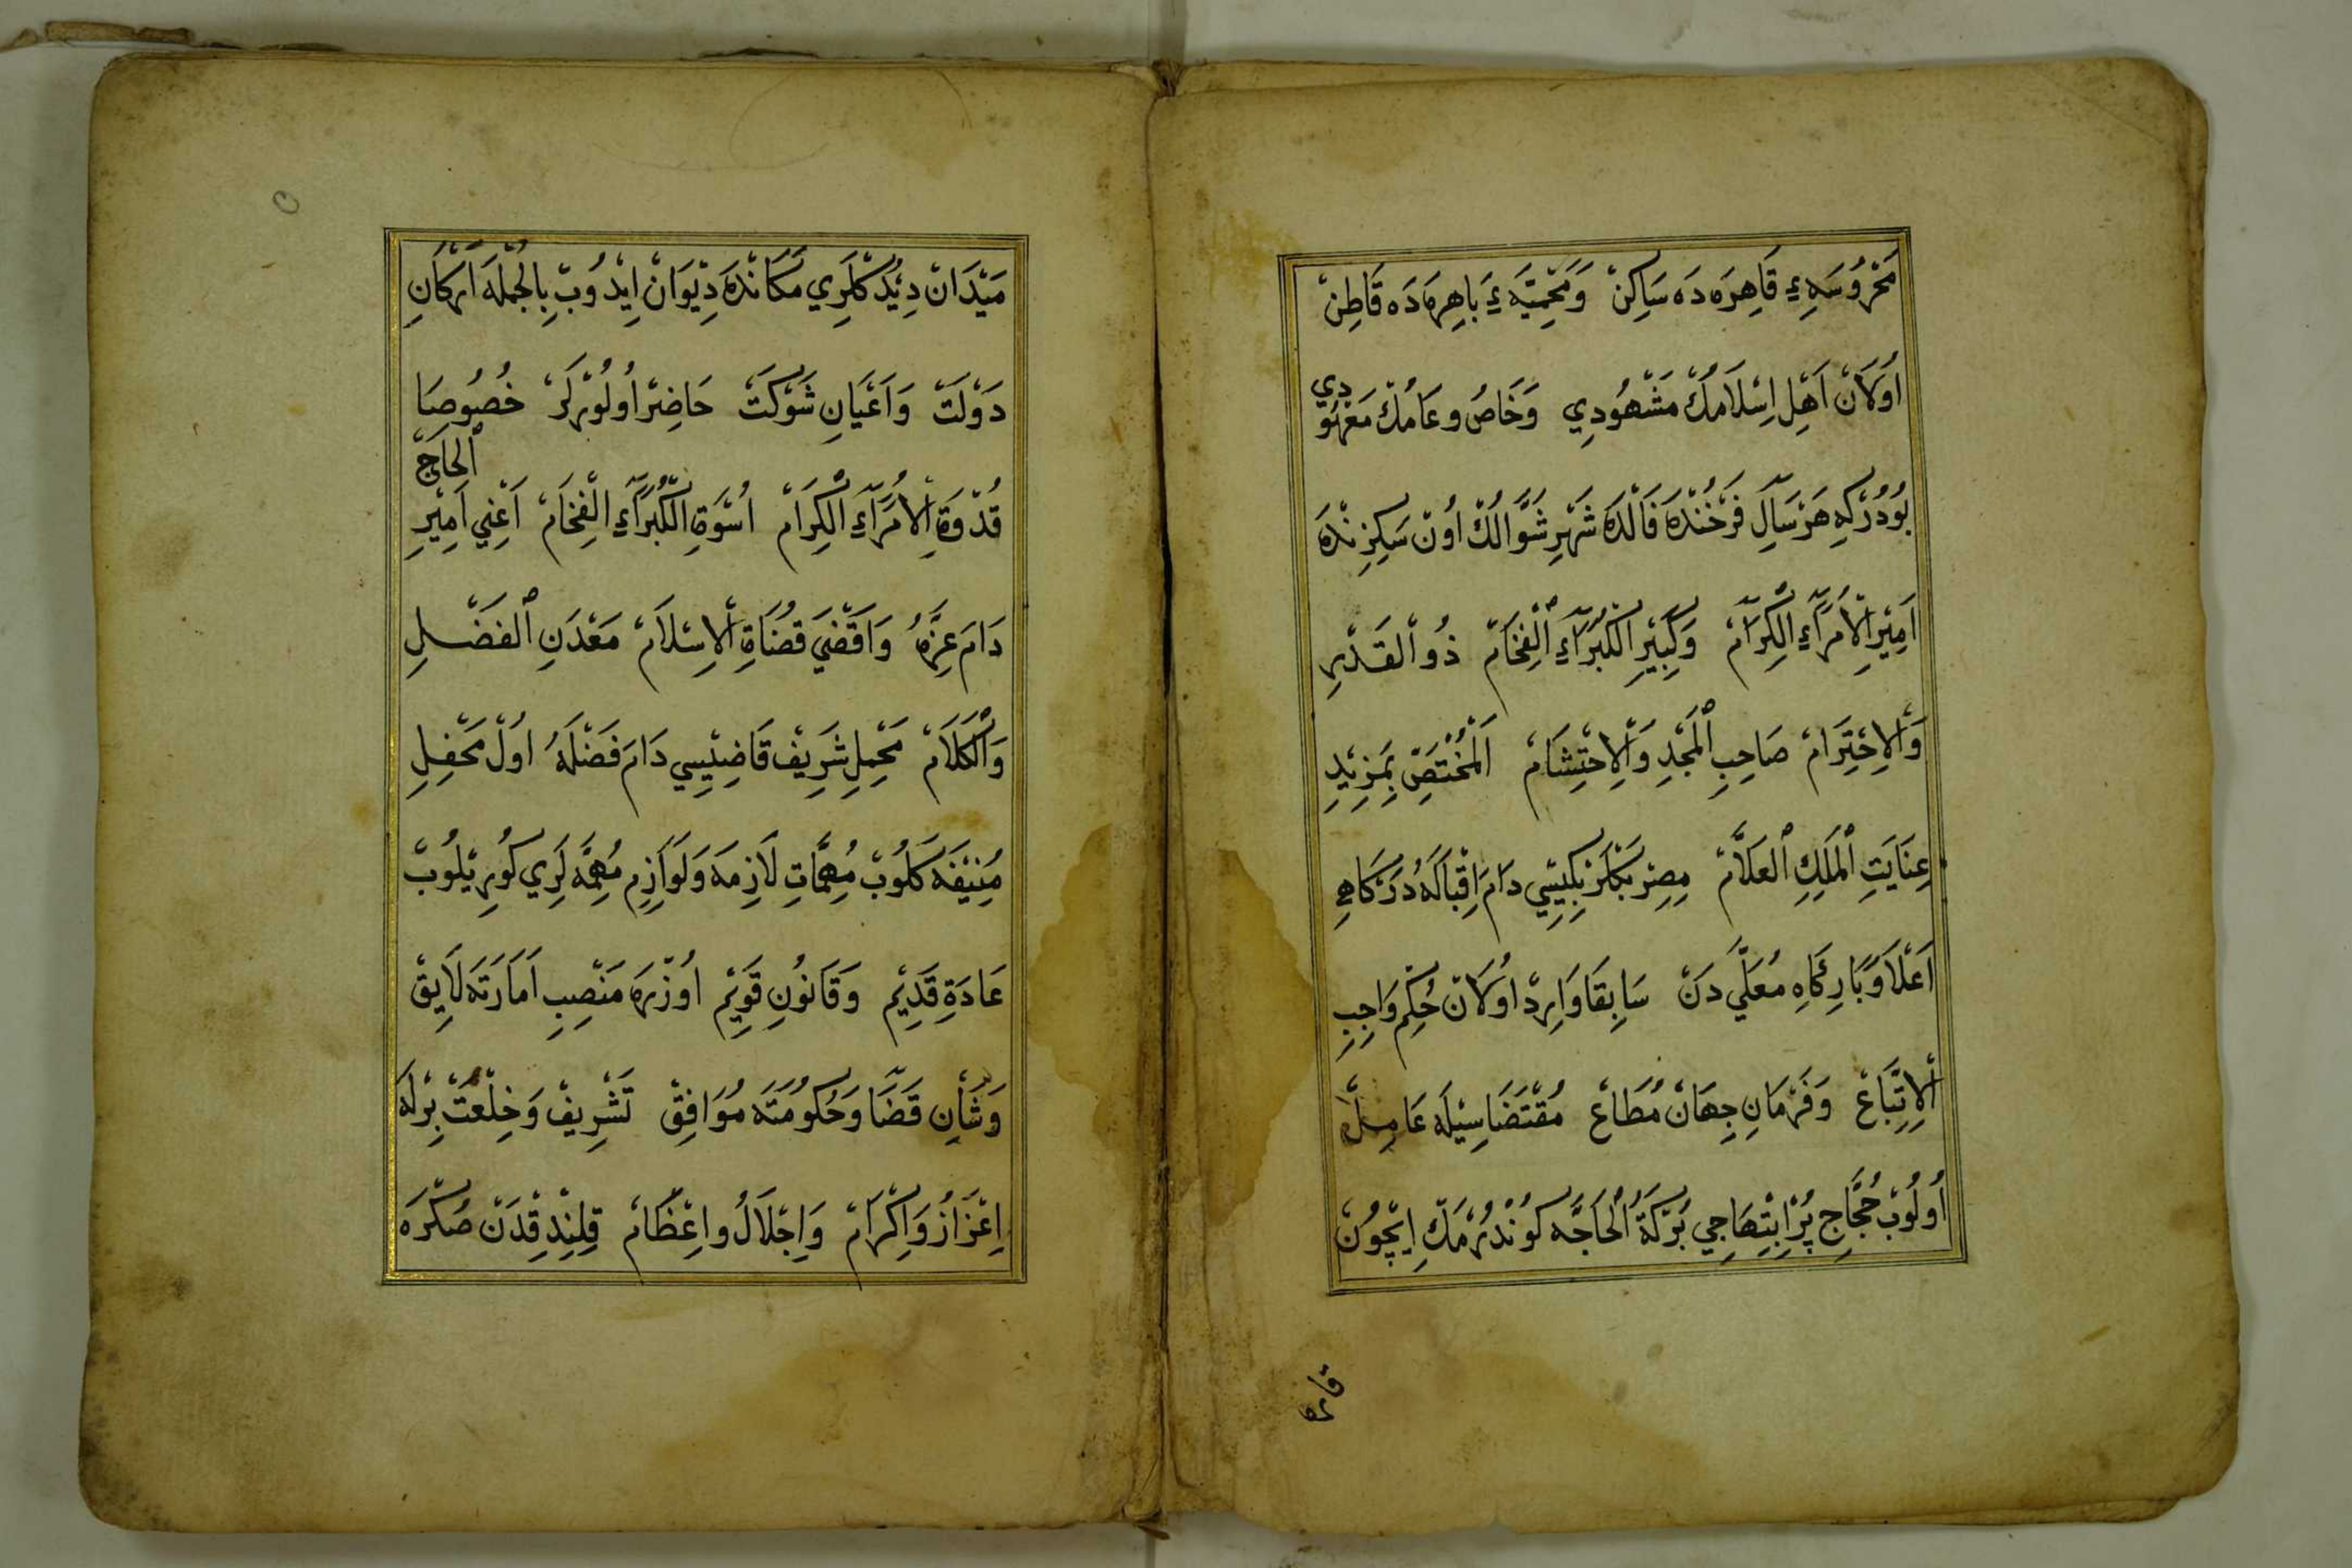 مَحْرُوسَهِءِ قَاهِرَه دَه سَاكِنْ وَمَحْمِيَّه ءِ بَاهِرَه دَه قَاطِنْ
اُولَانْ اَهْلِ اِسْلَامُكْ مَشْهُودِي وَخَاصُ وعَامُكْ مَعْهُودِي
بُودُرْكِه هَرْ سَالِ فَرْخُنْدَه فَالْدَه شَهْرِ شَوَّالُكْ اُونْ سَكِزِنْدَه
اَمِيْرِ الْاُمَرَآءِ الْكِرَامْ وَكَبِيْرِ الْكُبَرَآءِ الْفِخَامْ ذُو الْقَدْرِ
وَالْاِحْتِرَامْ صَاحِبِ الْمَجْدِ وَالْاِحْتِشَامْ اَلْمُخْتَصِّ بِمَزِيْدِ
عِنَايَتِ الْمَلِكِ الْعَلَّامْ مِصِرْ بَكْلَرْبِكِيْسِي دَامَ اِقْبَالَهُ دَرْكَاهِ
اَعْلَا وَبَارِكَاهِ مُعَلَّي دَنْ سَابِقَا وَارِدْ اُولَانْ حُكِمْ وَاجِبِ
الْاِتِّبَاعْ وَفَرْمَانِ جِهَانْ مُطَاعْ مُقْتَضَاسِيْلَه عَامِلْ
اُولُوبْ حُجَّاجِ پُرْ اِبْتِهَاجِي بُرْكَةُ الْحَاجَّه كُونْدُرْمَكْ اِيْچُونْ
قاره
مَيْدَانْ دِيْدُكْلَرِي مَكَانْدَه دِيْوَانْ اِيْدُوبْ بِالْجُمْلَه اَرْكَانِ
دَوْلَتْ وَاَعْيَانِ شَوْكَتْ حَاضِرْ اُولُورْلَرْ خُصُوصَا
قُدْوَةِ الْاُمَرَآءِ الْكِرَامْ اُسْوَةِ الْكُبَرَآءِ الْفِخَامْ اَعْنِي اَمِيْرِ الْحَاجّ
دَامَ عِزُّهُ وَاَقْضَي قُضَاةِ الْاِسْلَامْ مَعْدَنِ الْفَضْلِ
وَالْكَلَامْ مَحْمِلِ شَرِيفْ قَاضِيْسِي دَامَ فَضْلَهُ اُولْ مَحْفِلِ
مُنِيْفَه كَلُوبْ مُهِمَّاتِ لَازِمَه وَلَوَازِمِ مُهِمَّه لَرِي كُورِيْلُوبْ
عَادَةِ قَدِيْمْ وَقَانُونِ قَوِيْمْ اُوزْرَه مَنْصِبِ اَمَارَتَه لَايِقْ
وَشَأنِ قَضَا وَحُكُومَتَه مُوَافِقْ تَشْرِيفْ وَخِلْعَتْ بِرْلَه
اِعْزَازُ وَاِكْرَامْ وَاِجْلَالُ واِعْظَامْ قِلِنْدِقْدَنْ صُكْرَه